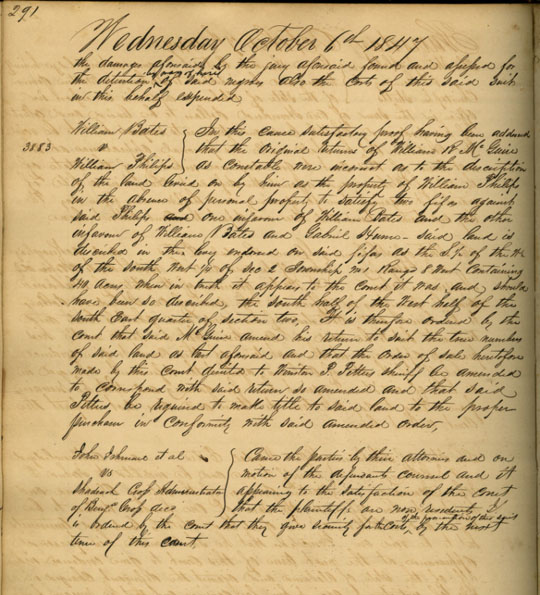 291
Wednesday October 6th 1847
the damages aforesaid by the jury aforesaid found and assessed for
the detention by way of hire of said negroes also the Costs of this said suit
in this behalf expended
William Bates
v
William Philips
3883
In this cause satisfactory proof having been adduced
that the original returns of William R McGuire
as Constable were incorrect as to the discription
of the land levied on by him as the property of William Philips
in the absence of personal property to satisfy two fifas against
said Philips and one infavour of William Bates and the other
infavour of William Bates and Gabriel Hume - said land is
described in the levy endorsed on said fifas as the S½ of the
of the South West ¼ of Sec 2 Township No 1 Range 8 West Containing
40 acres when in truth it appears to the Court it was and should
have been so described, the South half of the West half of the
South East quarter of section two. It is therefore ordered by the
Court that said McGuire amend his return to suit the true numbers
of said land as last aforesaid and that the order of sale heretofore
made by this Court directed to P. Petters sheriff be amended
to correspond with said return so amended and that said
Petters, be required to make tytle to said land to the proper
purchaser in Conformity with said Amended Order,
John et al
vs
Shadrach Crof Administrator
of Benj. Crof decd
Came the parties by their Attornies and on
motion of the defendants council and it
appearing to the satisfaction of the Court
that the plaintiffs are non residents
is ordered by the Court that they give security for the Costs of the prosecution of this suit by the next
time of this Court.